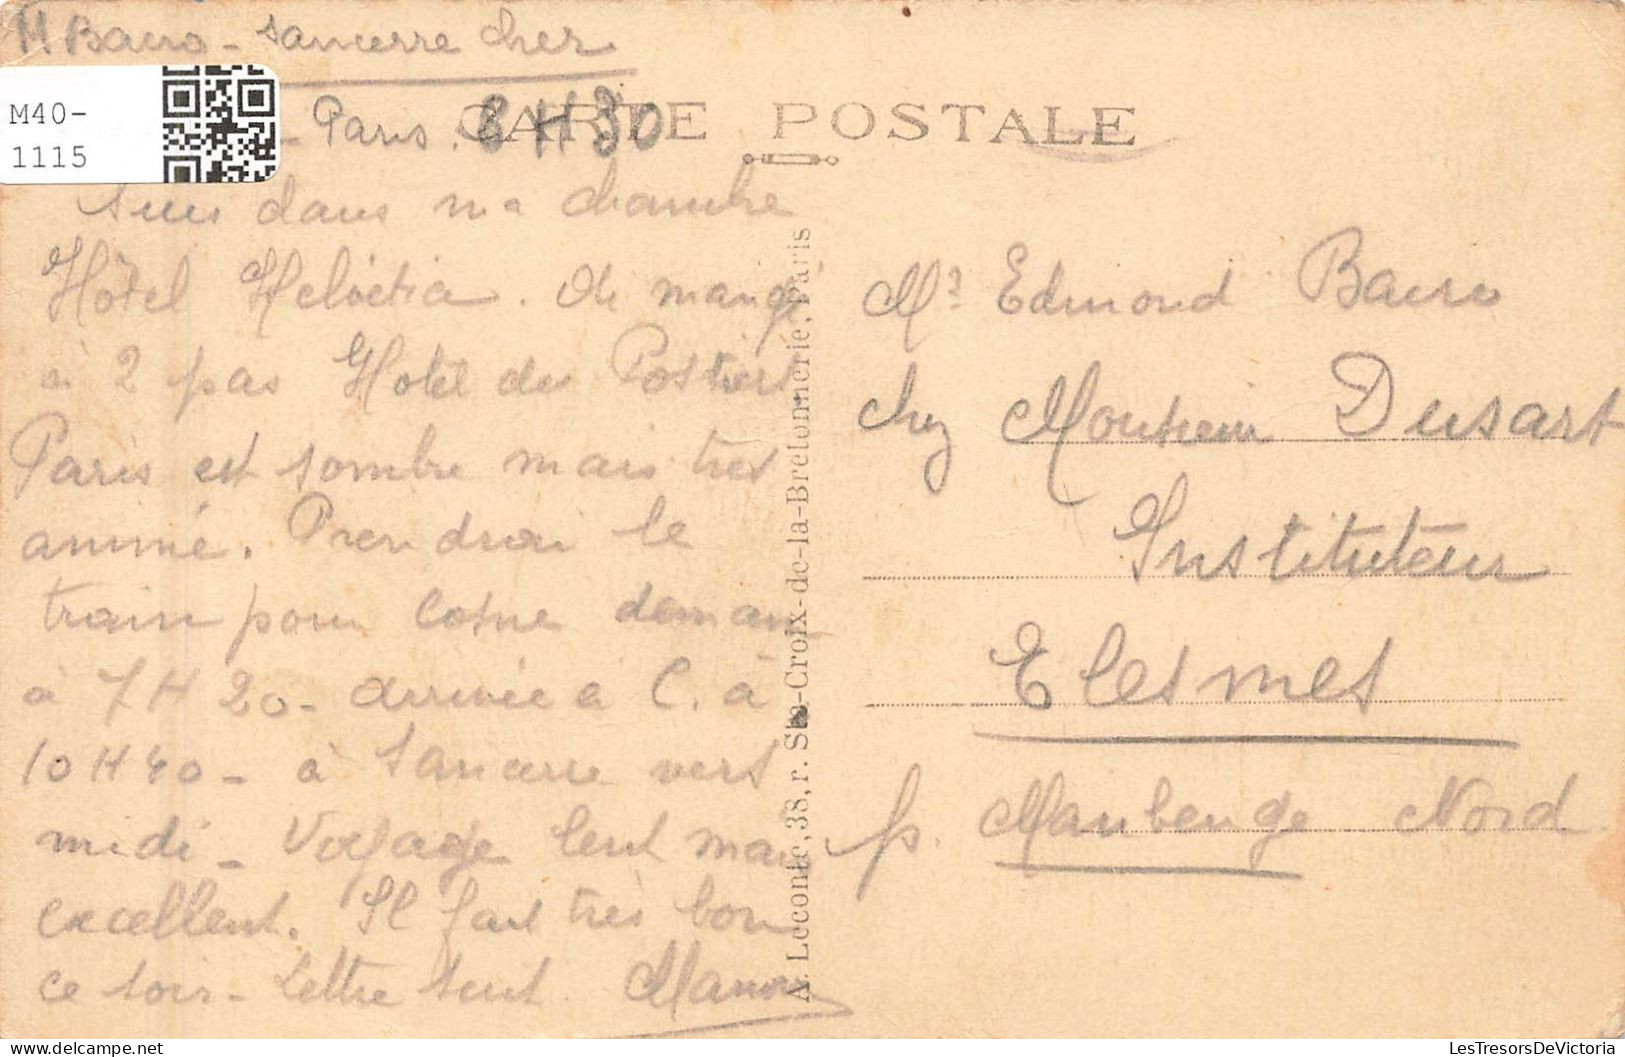 M Bacro - Sancerre Cher
M40-
1115
- Paris. 8 H 30
CARTE POSTALE
Suis dans ma chambre
Hôtel Helvétia. Ai mangé
à 2 pas Hotel des Postiers
Paris est sombre mais très
animé. Prendrai le
train pour Cosne demain
à 7 H 20 - arrivée à C. à
10 H 40 - à Sancerre vers
midi - Voyage lent mais
excellent. Il fait très bon
ce soir - Lettre suit
A. Leconte, 38, r. Ste-Croix-de-la-Bretonnerie, Paris
Mr Edmond Bacro
chez Monsieur Dusart
Instituteur
Elesmes
p. Maubeuge Nord
LesTresorsDeVictoria